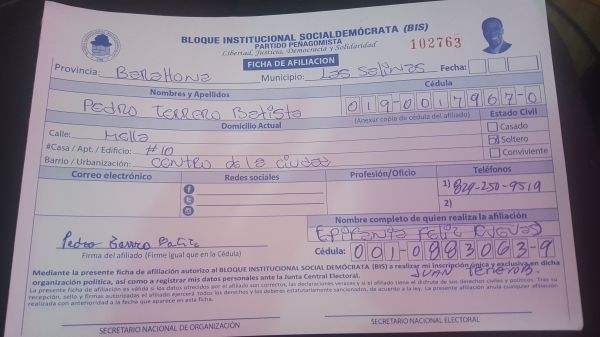 BLOQUE INSTITUCIONAL SOCIALDEMÓCRATA (BIS)
PARTIDO PEÑAGOMISTA
Libertad, Justicia, Democracia y Solidaridad
102763
FICHA DE AFILIACION
Provincia: Barahona Municipio: Las Salinas Fecha:
Nombres y Apellidos Cédula
Pedro Terrero Batista 019-0017967-0
(Anexar copia de cédula del afiliado)
Domicilio Actual Estado Civil
Calle: Mella Casado
#Casa / Apt. / Edificio: #10 Soltero
Barrio / Urbanización: centro de la ciudad Conviviente
Correo electrónico Redes sociales Profesión/Oficio Teléfonos
1) 829-250-9519
2)
Nombre completo de quien realiza la afiliación
Epifania Feliz
Pedro
Firma del afiliado (Firme igual que en la Cédula)
Cédula: 001-0983063-9
Mediante la presente ficha de afiliación autorizo al BLOQUE INSTITUCIONAL SOCIAL DEMÓCRATA (BIS) a realizar mi inscripción única y exclusiva en dicha
organización política, así como a registrar mis datos personales ante la Junta Central Electoral.
Juan
La presente ficha de afiliación es válida si los datos ofrecidos por el afiliado son correctos, las declaraciones veraces y si el afiliado tiene el disfrute de sus derechos civiles y políticos. Tras su
recepción, sello y firmas autorizadas el afiliado ejercerá todos los derechos y los deberes estatutariamente sancionados, de acuerdo a la ley. La presente afiliación anula cualquier afiliación
realizada con anterioridad a la fecha que aparece en esta ficha.
SECRETARIO NACIONAL DE ORGANIZACIÓN SECRETARIO NACIONAL ELECTORAL